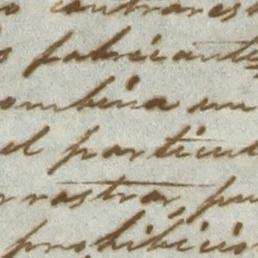 contrares
fabricante
ombina un
el particul
rrastra, pu
prohibicio